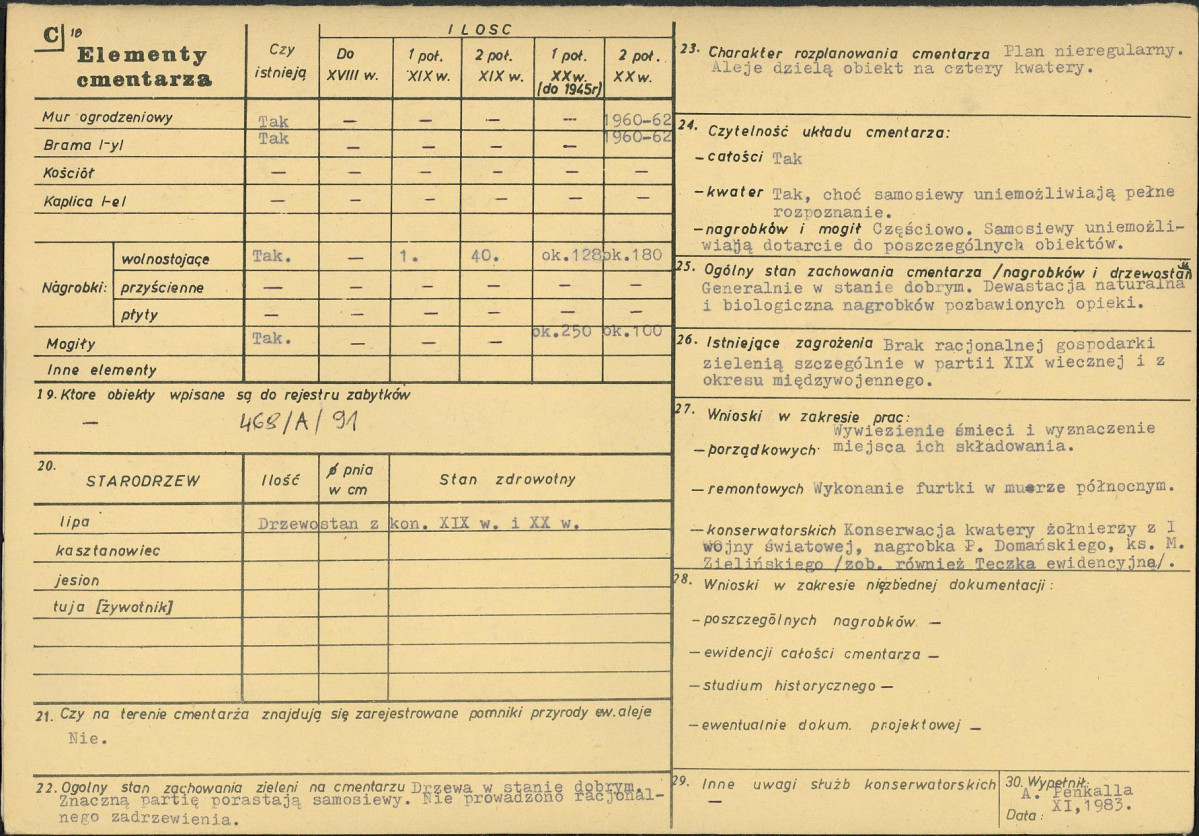 C 18
Elementy cmentarza
Czy istnieją
ILOSC
Do XVIII w.
1 poł. XIX w.
2 poł. XIX w.
1 poł. XX w. (do 1945r)
2 poł. XX w.
Mur ogrodzeniowy Tak — — — — 1960-62
Brama I-yI Tak — — — — 1960-62
Kościół — — — — — —
Kaplica I-eI — — — — — —
Nagrobki:
wolnostojące Tak. — 1. 40. ok.128 ok.180
przyścienne — — — — — —
płyty — — — — — —
Mogiły Tak. — — — ok.250 ok.100
Inne elementy
19. Ktore obiekty wpisane są do rejestru zabytków
— 468/A/91
20.
STARODRZEW Ilość ϕ pnia w cm Stan zdrowotny
lipa Drzewostan z kon. XIX w. i XX w.
kasztanowiec
jesion
tuja [żywotnik]
21. Czy na terenie cmentarza znajdują się zarejestrowane pomniki przyrody ew. aleje
Nie.
22. Ogolny stan zachowania zieleni na cmentarzu Drzewa w stanie dobrym.
Znaczną partię porastają samosiewy. Nie prowadzono racjonal-
nego zadrzewienia.
23. Charakter rozplanowania cmentarza Plan nieregularny.
Aleje dzielą obiekt na cztery kwatery.
24. Czytelność układu cmentarza:
— całości Tak
— kwater Tak, choć samosiewy uniemożliwiają pełne
rozpoznanie.
— nagrobków i mogił Częściowo. Samosiewy uniemożli-
wiają dotarcie do poszczególnych obiektów.
25. Ogólny stan zachowania cmentarza /nagrobków i drzewostan
Generalnie w stanie dobrym. Dewastacja naturalna
i biologiczna nagrobków pozbawionych opieki.
26. Istniejące zagrożenia Brak racjonalnej gospodarki
zielenią szczególnie w partii XIX wiecznej i z
okresu międzywojennego.
27. Wnioski w zakresie prac:
Wywiezienie śmieci i wyznaczenie
— porządkowych miejsca ich składowania.
— remontowych Wykonanie furtki w murze północnym.
— konserwatorskich Konserwacja kwatery żołnierzy z I
wojny światowej, nagrobka P. Domańskiego, ks. M.
Zielińskiego /zob. również Teczka ewidencyjna/.
28. Wnioski w zakresie niezbędnej dokumentacji:
— poszczególnych nagrobków —
— ewidencji całości cmentarza —
— studium historycznego —
— ewentualnie dokum. projektowej —
29. Inne uwagi służb konserwatorskich
—
30. Wypełnił:
A. Penkalla
XI,1983.
Data: